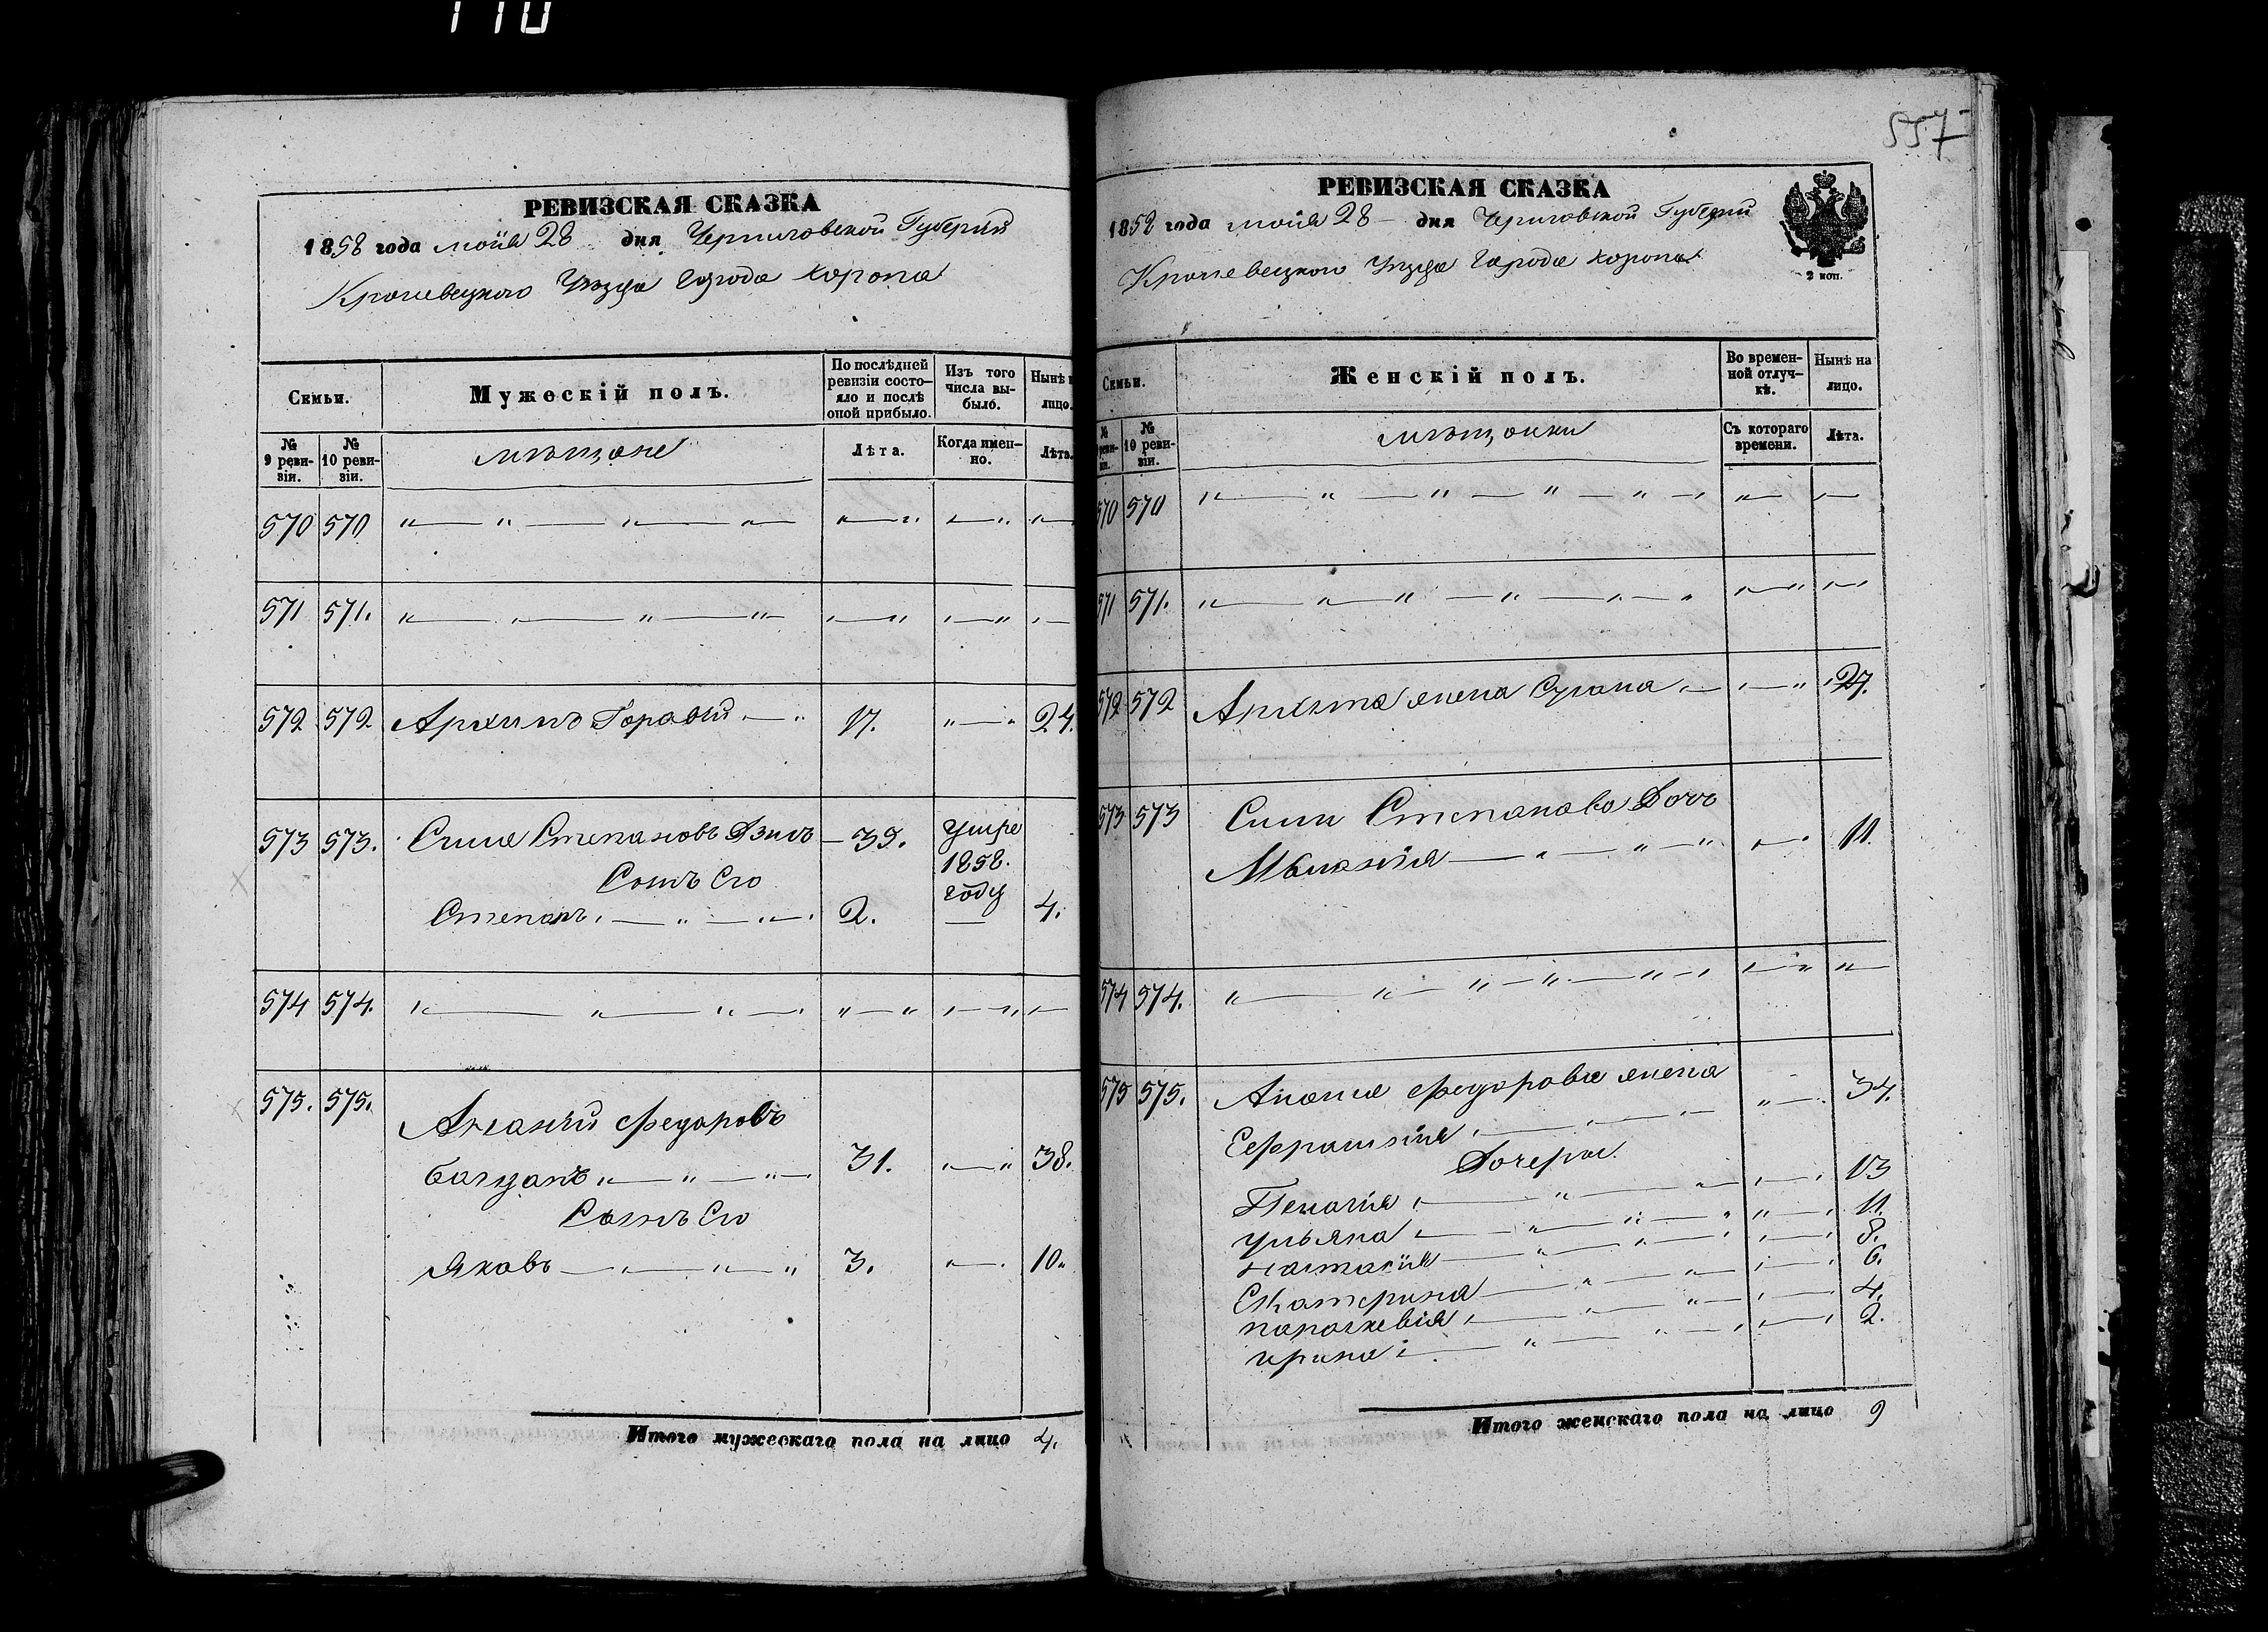 110
РЕВИЗСКАЯ СКАЗКА
1858 года маія 28 дня Черниговской Губерніи
Кролевецкого Уезда Города Коропа
Семьи.
Мужескій полъ.
По послѣдней ревизіи состояло и послѣ оной прибыло.
Изъ того числа выбыло.
Нынѣ
лицо.
№ 9 ревизіи.
№ 10 ревизіи.
мѣщане
Лѣта.
Когда именно.
Лѣта.
570 570
571 571.
572 572. Архипъ 17. 24.
573 573. Степановъ 39. умре 1858. году
Сынъ Его
Степанъ 2. 4.
574 574.
575. 575. Ананій Федоровъ
31. 38.
Сынъ Его
Яковъ 3. 10.
Итого мужескаго пола на лицо 4.
557
РЕВИЗСКАЯ СКАЗКА
1858 года маія 28 дня Черниговской Губерніи
Кролевецкого Уезда Города Коропа
2 коп.
Семьи.
Женскій полъ.
Во временной отлучкѣ.
Нынѣ на лицо.
№ 10 ревизіи.
мѣщанки
Съ котораго времени.
Лѣта.
570 570
571 571.
572 572 Архипа жена 27.
573 573 Степанова Дочь
11.
574 574.
575 575. Анания Федорова жена
Ефросинія 34.
Дочери
Пелагія 13
Ульяна 11.
Настасія 8.
Екатерина 6.
Параскевія 4.
Ирина 2.
Итого женскаго пола на лицо 9